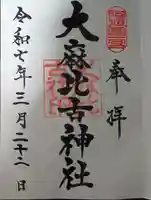 奉拝
大麻比古神社
令和七年三月二十二日